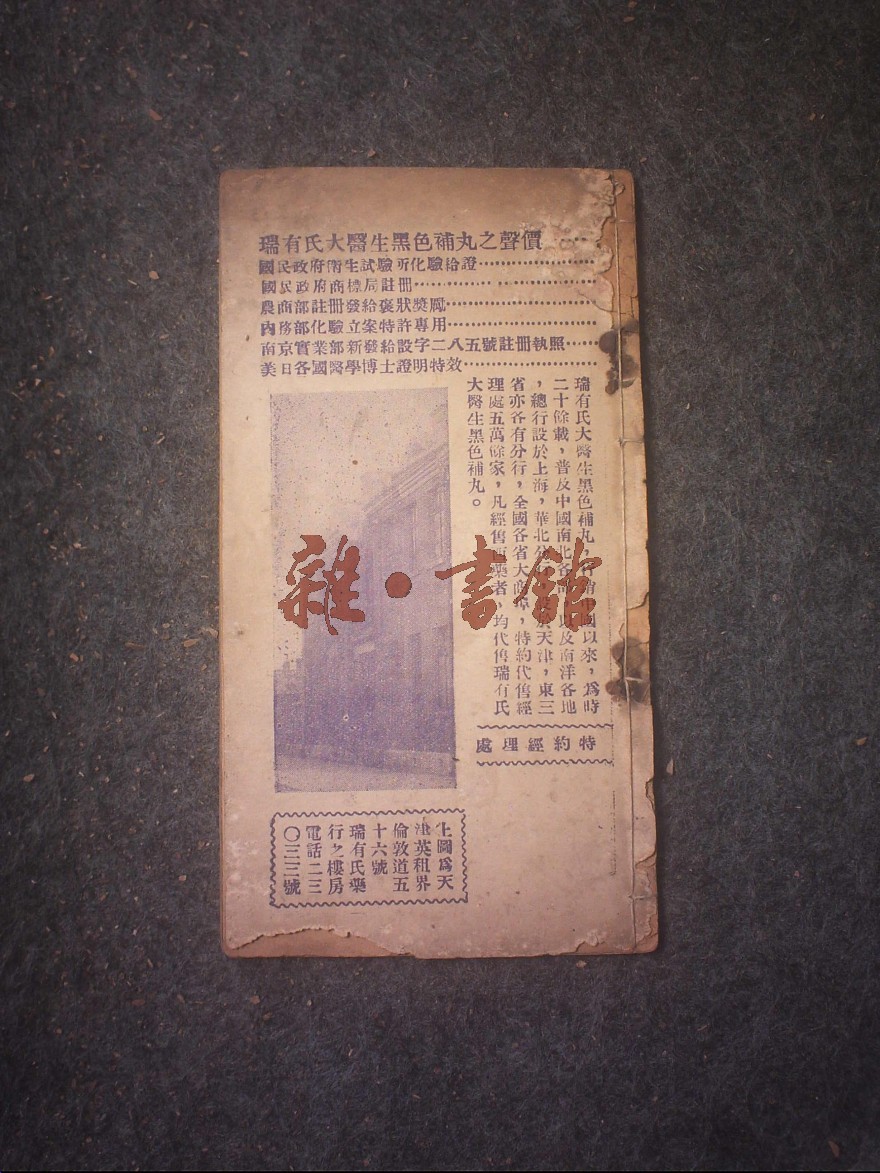 瑞有氏大醫生黑色補丸之聲價……
國民政府衛生試驗所化驗給證……
國民政府商標局註冊……
農商部註冊發給褒狀獎鳳……
內務部化驗立案特許專用……
南京實業部新發給設字二八五號註冊執照……
美日各國醫學博士證明特效……
瑞有氏大醫生黑色補丸 國以來，爲時
二十餘載，普及中國南北各 及南洋各地
，總行設於上海，華北 於天津，東三
省亦各有分行，全國各省大商埠，特約代售經
理處五萬餘家，凡經售西藥者，均代售瑞有氏
大醫生黑色補丸。
處理經約特
上圖爲天
津英租界
倫敦道五
十六號
瑞有氏藥
行之樓房
電話二三
〇三三號
雜·書館